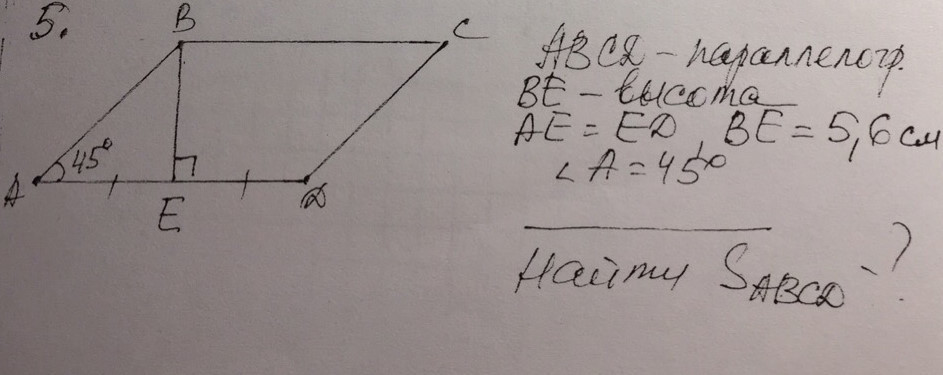 5.
B
C
A
45°
E
D
ABCD - параллелогр.
BE - высота
AE = ED, BE = 5,6 см
∠A = 45°
Найти S ABCD - ?